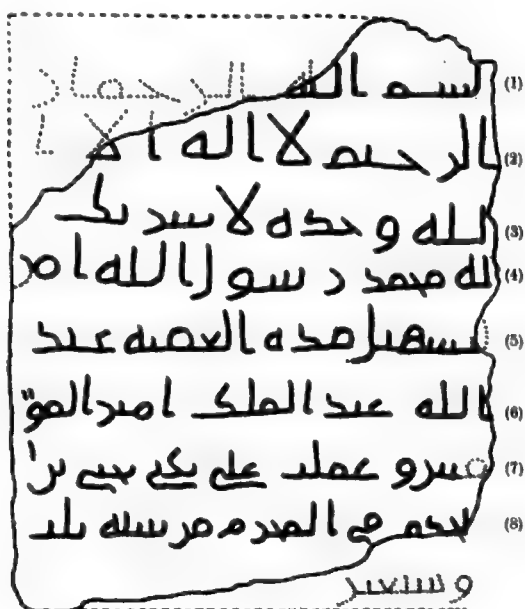 (1) بسم الله الرحمن
(2) الرحيم لا اله الا
(3) الله وحده لا شريك
(4) له محمد رسول الله امر
(5) بتسهيل هذه العقبه عبد
(6) الله عبد الملك امير المؤ
(7) منين وعملت على يدي يحيى بن ا
(8) لحكم في المحرم من سنه ثلث
وسبعين